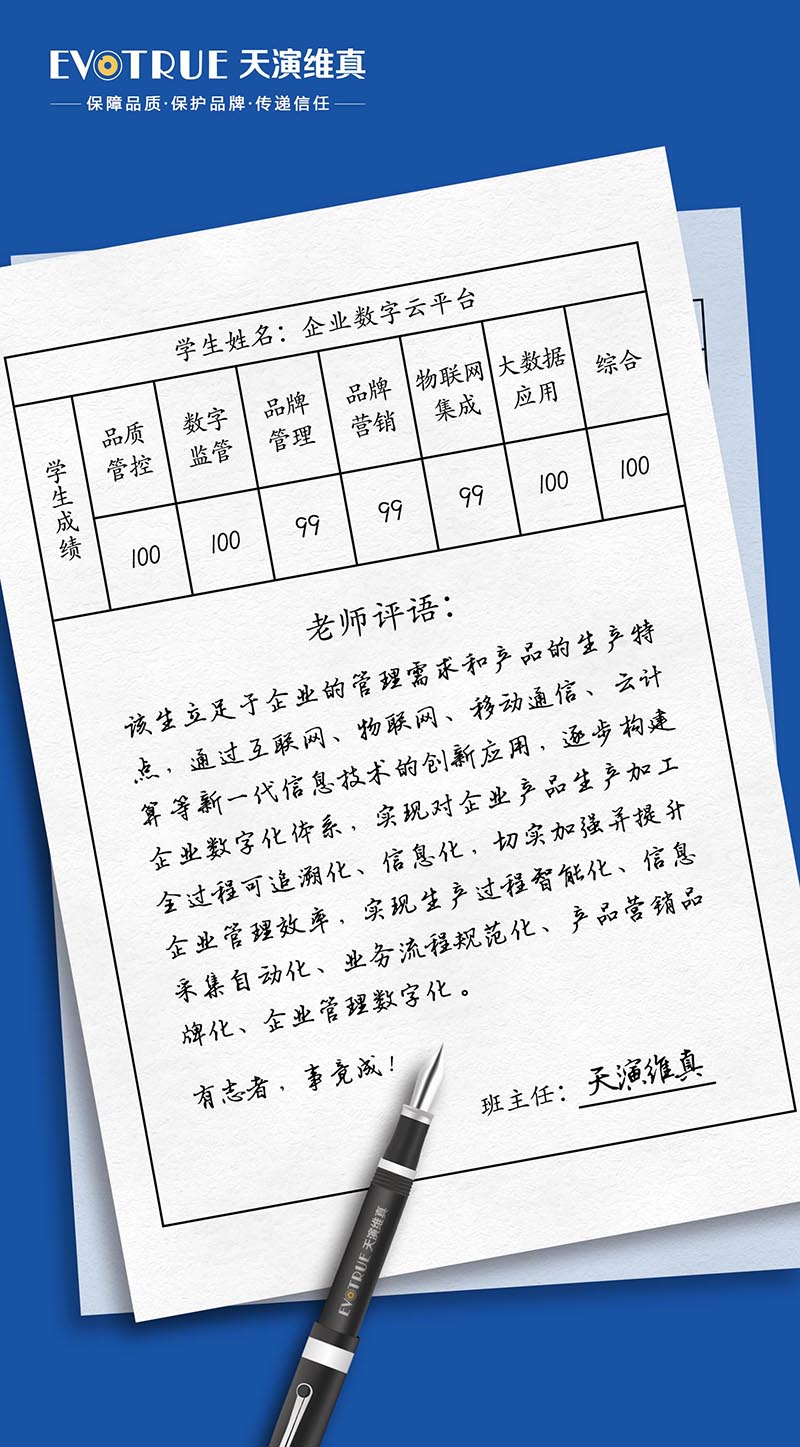 EVOTRUE 天演维真
保障品质·保护品牌·传递信任
学生姓名：企业数字云平台
学生成绩
品质管控 数字监管 品牌管理 品牌营销 物联网集成 大数据应用 综合
100 100 99 99 99 100 100
老师评语：
该生立足于企业的管理需求和产品的生产特
点，通过互联网、物联网、移动通信、云计
算等新一代信息技术的创新应用，逐步构建
企业数字化体系，实现对企业产品生产加工
全过程可追溯化、信息化，切实加强并提升
企业管理效率，实现生产过程智能化、信息
采集自动化、业务流程规范化、产品营销品
牌化、企业管理数字化。
有志者，事竟成！
班主任：天演维真
EVOTRUE 天演维真